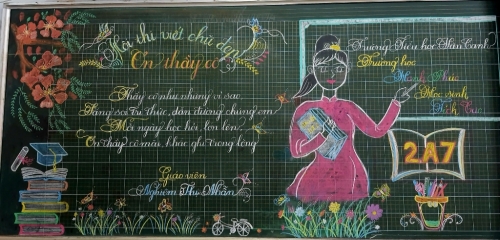 Hội thi viết chữ đẹp
Ơn thầy cô
Thầy cô như những vì sao
Sáng soi tri thức, dẫn đường chúng em
Mỗi ngày học hỏi, lớn lên
Ơn thầy cô mãi, khắc ghi trong lòng
Giáo viên
Nghiêm Thị Nhàn
Trường Tiểu học Xuân Canh
Trường học
Hạnh Phúc
Học sinh
Tích Cực
2A7